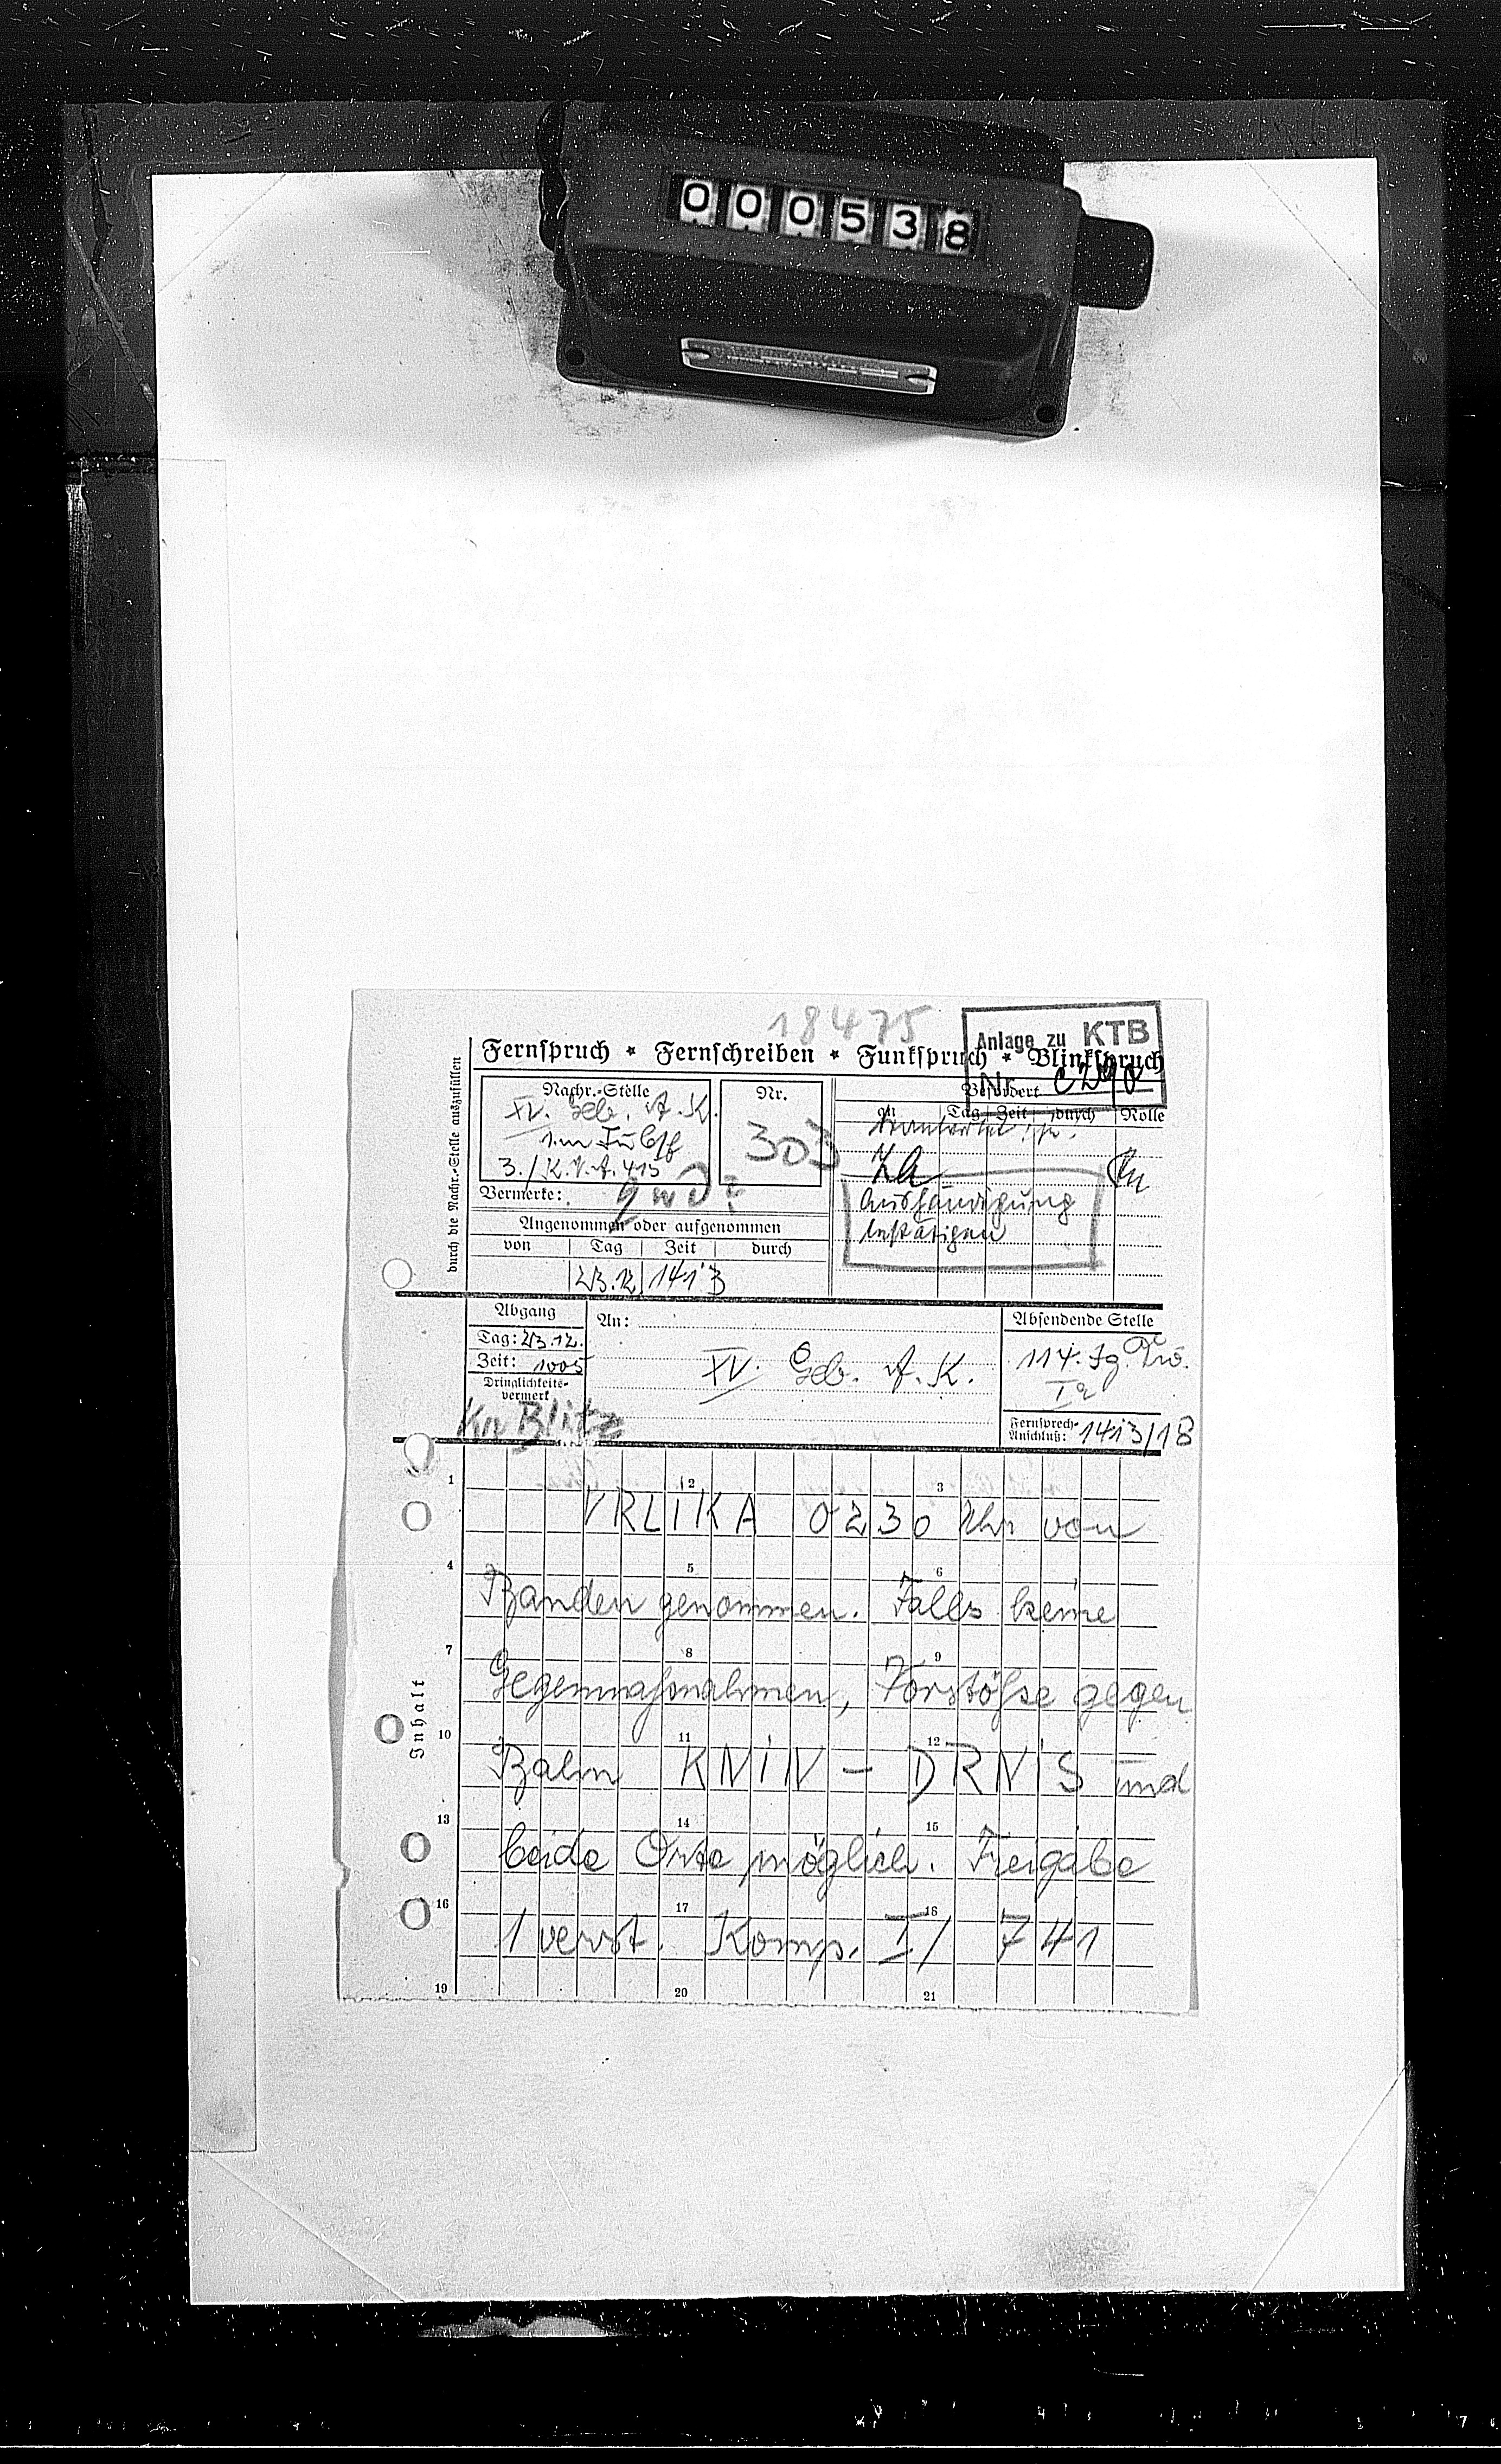 000538
18475
Anlage zu KTB
Nr. C290
Fernspruch * Fernschreiben * Funkspruch * Blinkspruch
durch die Nachr.-Stelle auszufüllen
Nachr.-Stelle
XV. Geb. A.K.
3./K.N.A. 415
Nr.
303
Befördert
an Tag Zeit durch Rolle
Aushändigung
bestätigen
Vermerke:
Angenommen oder aufgenommen
von Tag Zeit durch
23.12. 1413
Abgang
Tag: 23.12.
Zeit: 1005
Dringlichkeits-
vermerk
KR Blitz
An:
XV. Geb. A. K.
Absendende Stelle
114. Jg. Div.
Ia
Fernsprech-
Anschluß: 1413/18
Inhalt
1 2 3
VRLIKA 0230 Uhr von
4 5 6
Banden genommen. Falls keine
7 8 9
Gegenmaßnahmen, Vorstöße gegen
10 11 12
Bahn KNIN - DRNIS und
13 14 15
beide Orte möglich. Freigabe
16 17 18
1 verst. Komp. I/ 741
19 20 21